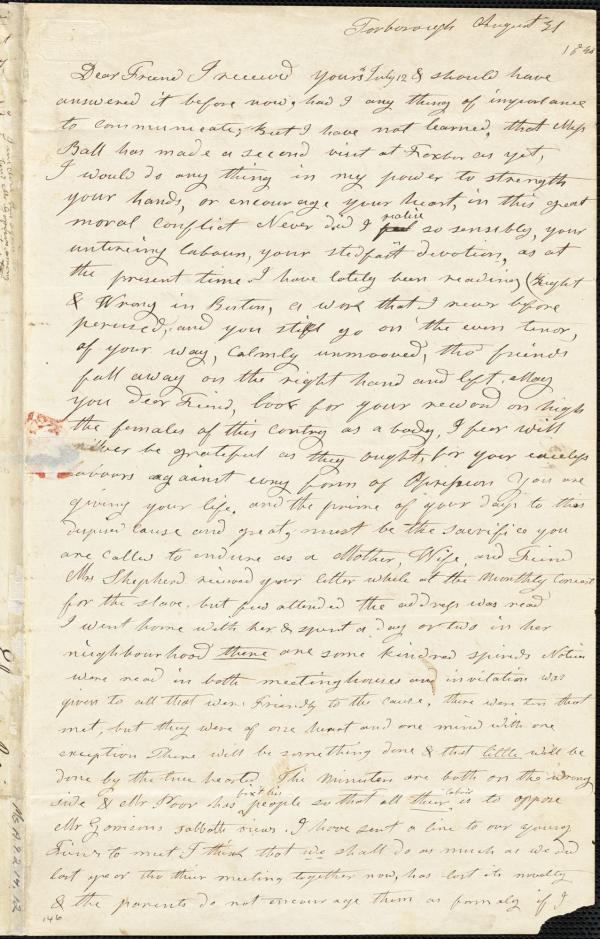 Foxborough August 31
18
Dear Friend I received yours July 12 & should have
answered it before now, had I any thing of importance
to communicate, But I have not learned, that Miss
Ball has made a second visit at Foxbor as yet,
I would do any thing in my power to strength
your hands, or encourage your heart, in this great
moral conflict Never did I realise so sensibly, your
untireing labours, your stedfast devotion, as at
the present time I have lately been reading (Right
& Wrong in Boston, a work that I never before
perused, and you still go on the even tenor,
of your way, Calmly unmooved, tho friends
fall away on the right hand and left. May
you dear Friend, look for your reward on high
the females of this contry as a body, I fear will
never be grateful as they ought, for your ceaseless
labours against every form of Opression You are
giving your life, and the prime of your days to this
dispised cause and great, must be the sacrifice you
are called to endure as a Mother, Wife, and Friend
Mrs Shepherd received your letter while at the Monthly Concert
for the slave. but few attended the address was read
I went home with her & spent a day or two in her
neighbourhood there are some kindred spirits Notices
were read in both meetinghouses and invitation was
given to all that were Friendly to the cause, there were ten that
met, but they were of one heart and one mind with one
exception There will be something done & that little will be
done by the true hearted The Ministers are both on the wrong
side & Mr Poor has people so that all their labour is to oppose
Mr Garrisons sabbath views. I have sent a line to our young
Friends to meet I think that we shall do as much as we did
last year tho their meeting together now, has lost its novelty
& the parents do not encourage them as formerly if I
146
Ms A.9.2.14.12